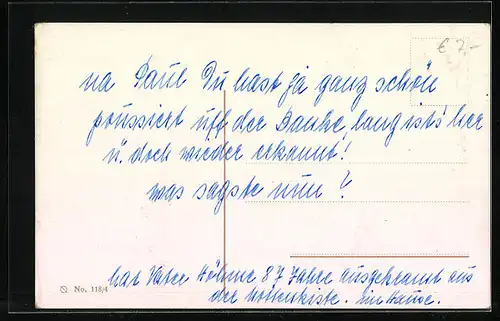 € 7.-
na Paul Du hast ja ganz schön
poussiert uff der Banke, lang ist's her
u. doch wieder erkannt!
was sagste nun?
hat Vater Höhne 87 Jahre ausgekramt aus
der
Zu Hause.
No. 118/4